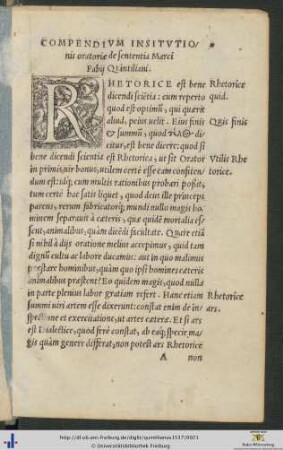 COMPENDIVM INSITVTIO/
nis oratoriæ de sententia Marci
Fabij Quintiliani.
RHETORICE est bene
dicendi sciẽtia: cum reperto
quod est optimũ, qui quærit
aliud, peius uelit. Eius finis
& summũ, quod τέλΘ di
citur, est bene dicere: quod si
bene dicendi scientia est Rhetorica, ut sit Orator
in primis uir bonus, utilem certè esse eam confiten/
dum est: idq; cum multis rationibus probari possit,
tum certè hac satis liquet, quod dein ille princeps
parens, rerum fabricatorq; mundi nullo magis ho
minem separauit à cæteris, quæ quidẽ mortalia es
sent, animalibus, quàm dicẽdi facultate. Quare etiã
si nihil à dijs oratione melius accepimus, quid tam
dignũ cultu ac labore ducamus: aut in quo malimus
præstare hominibus, quàm quo ipsi homines cæteris
animalibus præstent? Eo quidem magis, quod nulla
in parte plenius labor gratiam refert. Hanc etiam
summi uiri artem esse dixerunt: quæ constat enim in/
spectione et exercitatione, ut artes cæteræ. Et si ars
est Dialectice, quod ferè constat, ab eaq; specie ma/
gis quàm genere differat, non potest ars Rhetorice
A non
Rhetorice
quid.
Quis finis
Vtilis Rhe
torice.
Rhetorice
ars.
http://dl.ub.uni-freiburg.de/diglit/quintilianus1537/0021
© Universitätsbibliothek Freiburg